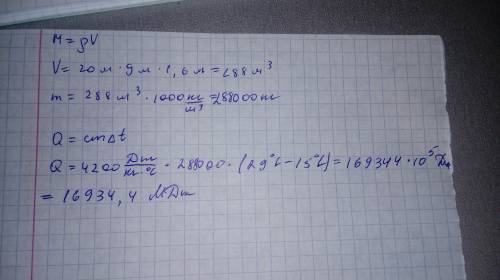 M = ρV
V = 20 м · 9 м · 1,6 м = 288 м³
m = 288 м³ · 1000 кг/м³ = 288000 кг
Q = cmΔt
Q = 4200 Дж/кг·°C · 288000 · (29°C - 15°C) = 169344 · 10⁵ Дж
= 16934,4 МДж